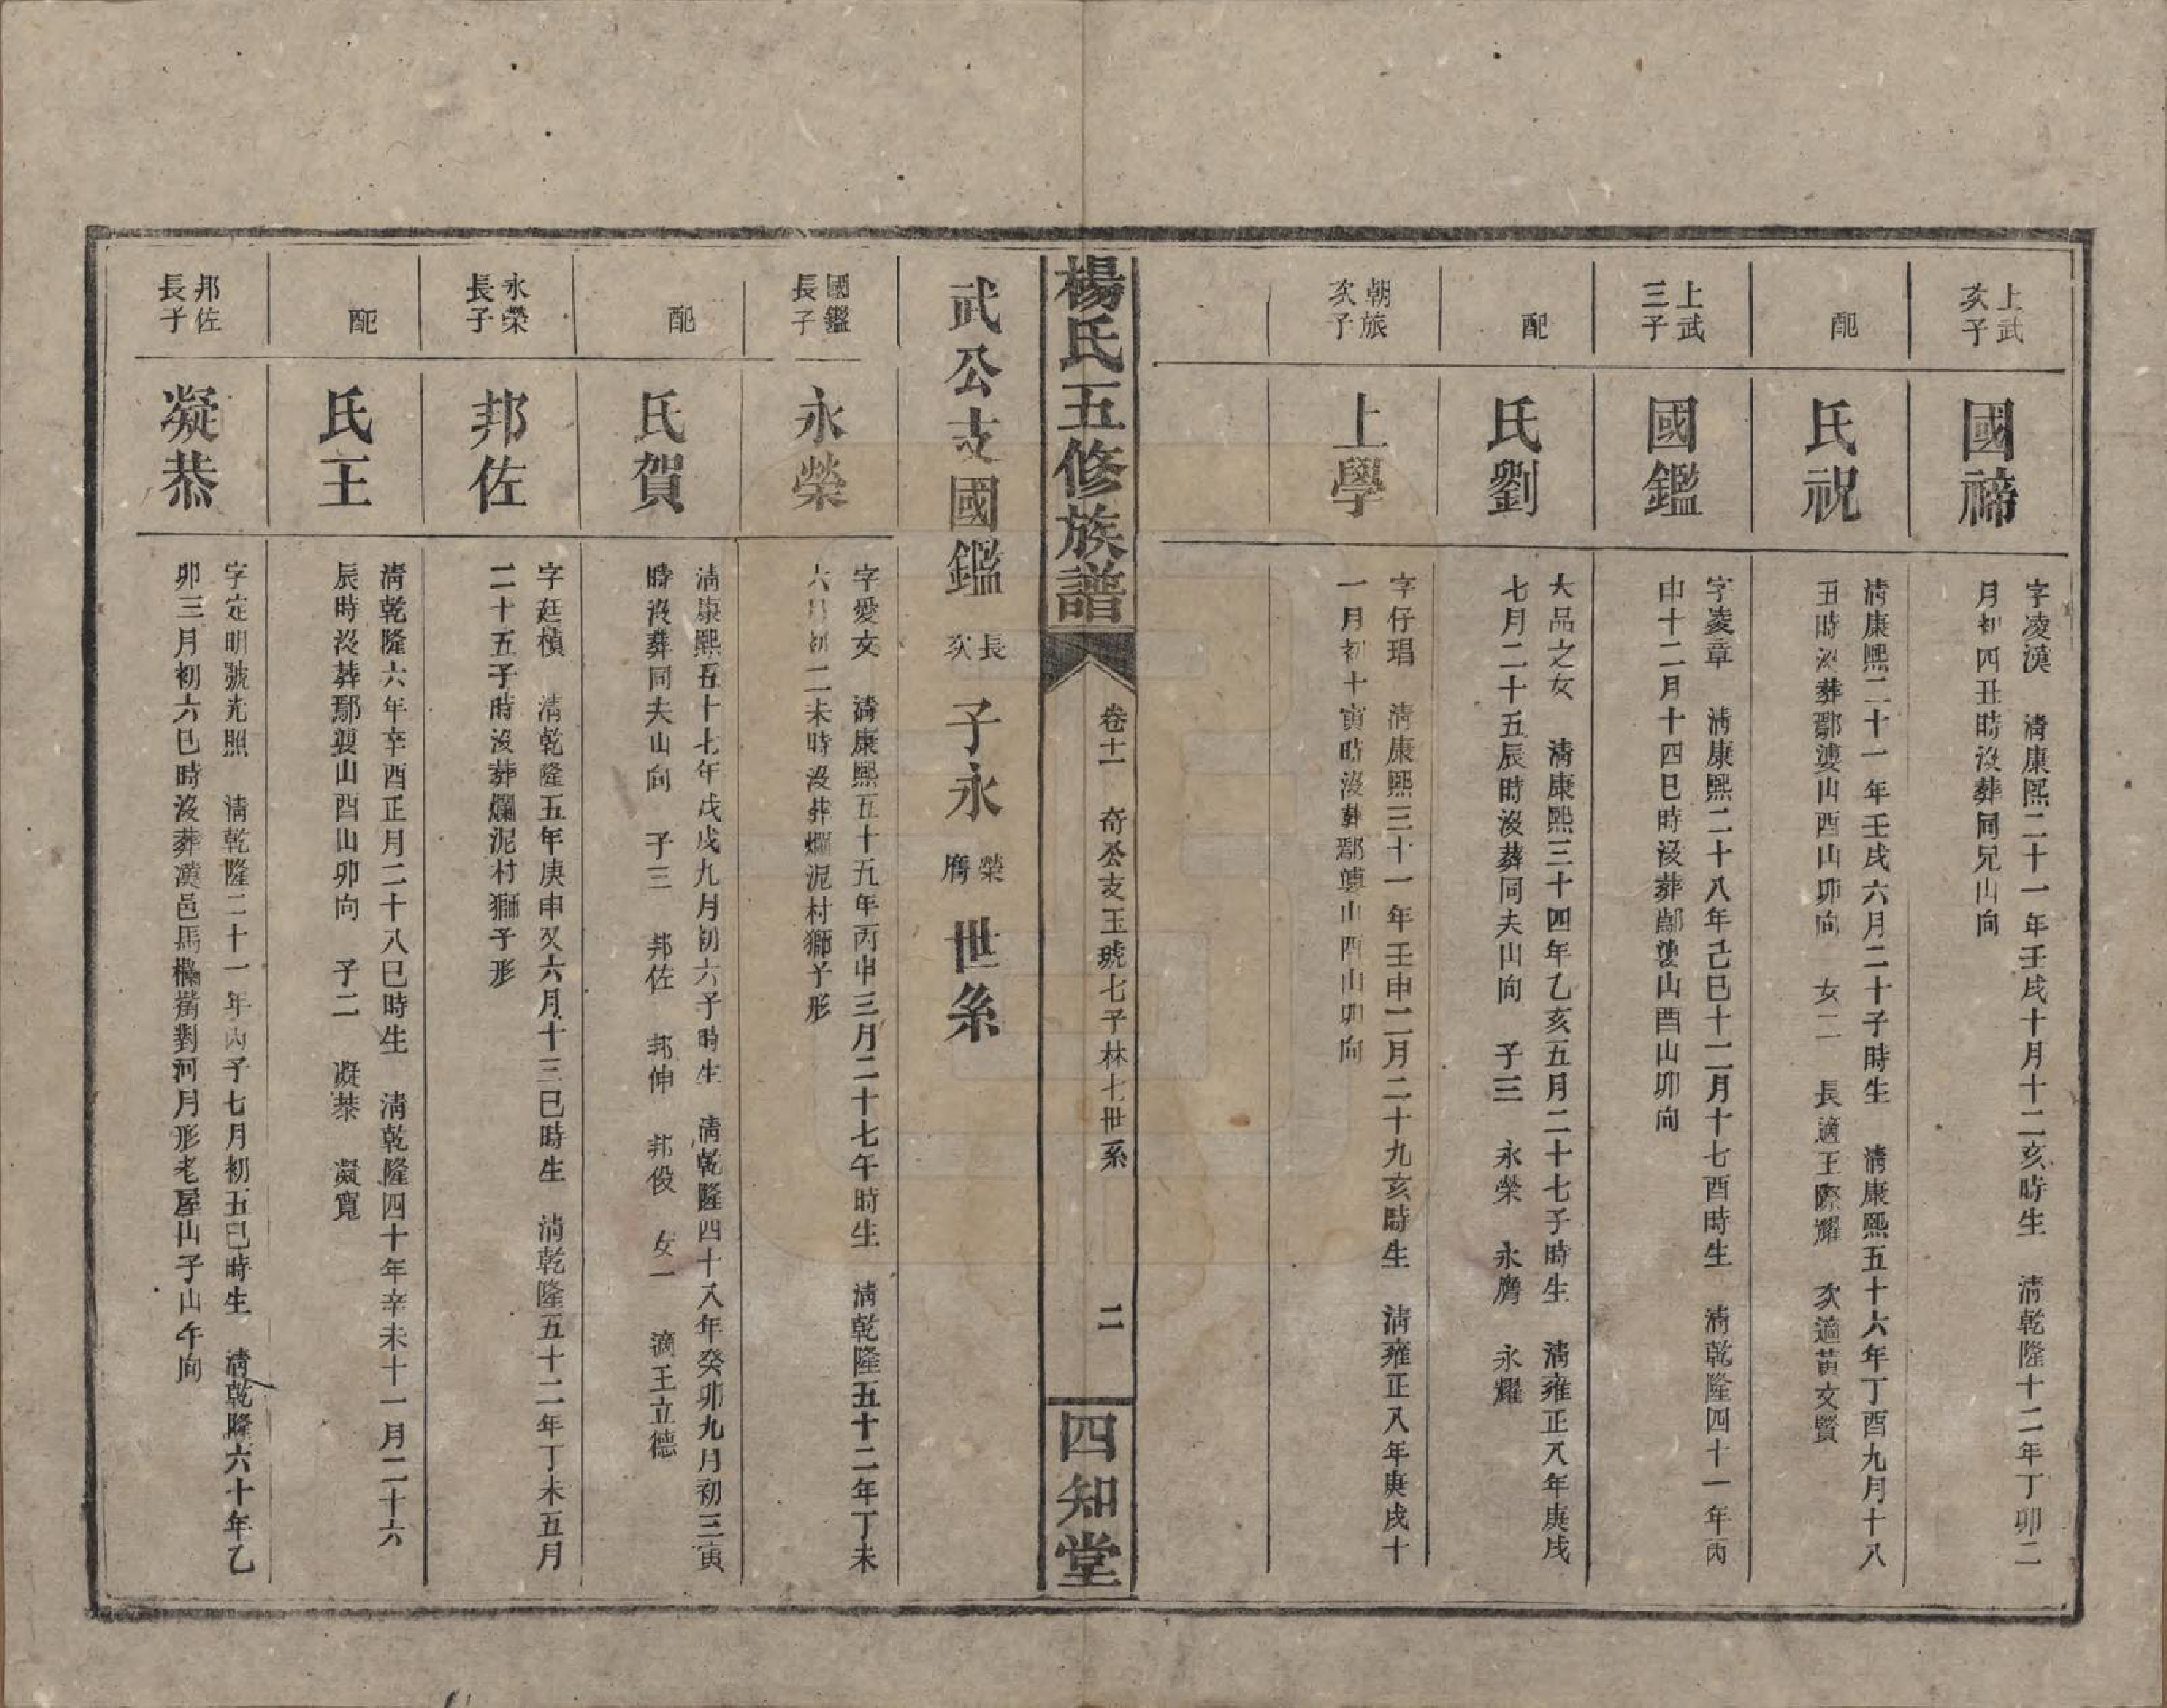 上武
次子
國禘
字凌漠　清康熙二十一年壬戌十月十二亥時生　清乾隆十二年丁卯二
月初四丑時沒葬同兄山向
配
氏祝
清康熙二十一年壬戌六月二十子時生　清康熙五十六年丁酉九月十八
丑時沒葬鄢婆山酉山卯向　女二　長適王際耀　次適黃文賢
上武
三子
國鑑
字凌章　清康熙二十八年己巳十二月十七酉時生　清乾隆四十一年丙
申十二月十四巳時沒葬鄢婆山酉山卯向
配
氏劉
大品之女　清康熙三十四年乙亥五月二十七子時生　清雍正八年庚戌
七月二十五辰時沒葬同夫山向　子三　永榮　永膺　永耀
朝旅
次子
上學
字仔琩　清康熙三十一年壬申二月二十九亥時生　清雍正八年庚戌十
一月初十寅時沒葬鄢婆山酉山卯向
楊氏五修族譜
卷十一　奇公支玉琥七子林七世系
二
四知堂
武公支國鑑長次子永榮膺世系
國鑑
長子
永榮
字愛女　清康熙五十五年丙申三月二十七午時生　清乾隆五十二年丁未
六月初二未時沒葬爛泥村獅子形
配
氏賀
清康熙五十七年戊戌九月初六子時生　清乾隆四十八年癸卯九月初三寅
時沒葬同夫山向　子三　邦佐　邦伸　邦俊　女一　適王立德
永榮
長子
邦佐
字廷槙　清乾隆五年庚申又六月十三巳時生　清乾隆五十二年丁未五月
二十五子時沒葬爛泥村獅子形
配
氏王
清乾隆六年辛酉正月二十八巳時生　清乾隆四十年辛未十一月二十六
辰時沒葬鄢婆山酉山卯向　子二　凝恭　凝寬
邦佐
長子
凝恭
字定明號光照　清乾隆二十一年丙子七月初五巳時生　清乾隆六十年乙
卯三月初六巳時沒葬漢邑馬欄對河月形老屋山子山午向